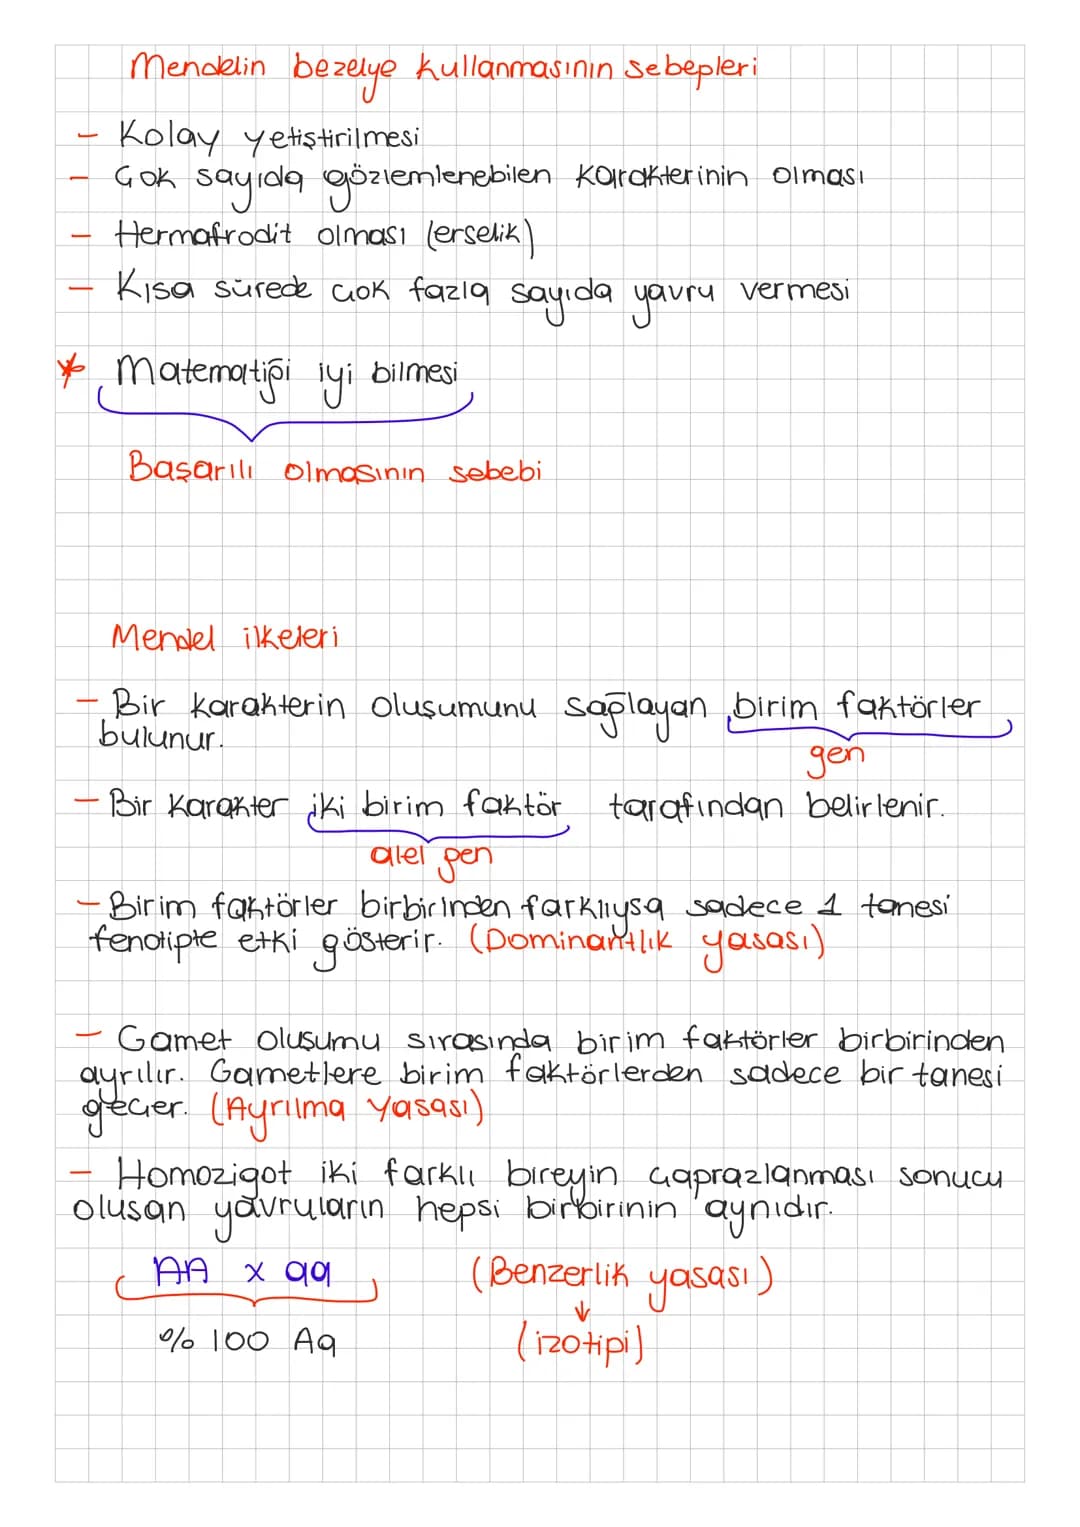 Mendelin bezelye kullanmasının sebepleri
- Kolay yetiştirilmesi
- Çok sayıda gözlemlenebilen karakterinin olması
- Hermafrodit olması (erselik)
- Kısa sürede çok fazla sayıda yavru vermesi
* Matematiği iyi bilmesi
Başarılı olmasının sebebi
Mendel ilkeleri
- Bir karakterin oluşumunu sağlayan birim faktörler
bulunur.
gen
- Bir karakter iki birim faktör tarafından belirlenir.
alel gen
- Birim faktörler birbirinden farklıysa sadece 1 tanesi
fenotipte etki gösterir. (Dominantlık yasası)
- Gamet oluşumu sırasında birim faktörler birbirinden
ayrılır. Gametlere birim faktörlerden sadece bir tanesi
geçer. (Ayrılma yasası)
- Homozigot iki farklı bireyin çaprazlanması sonucu
oluşan yavruların hepsi birbirinin aynıdır.
AA x aa (Benzerlik yasası)
↓
% 100 Aa (izotipi)